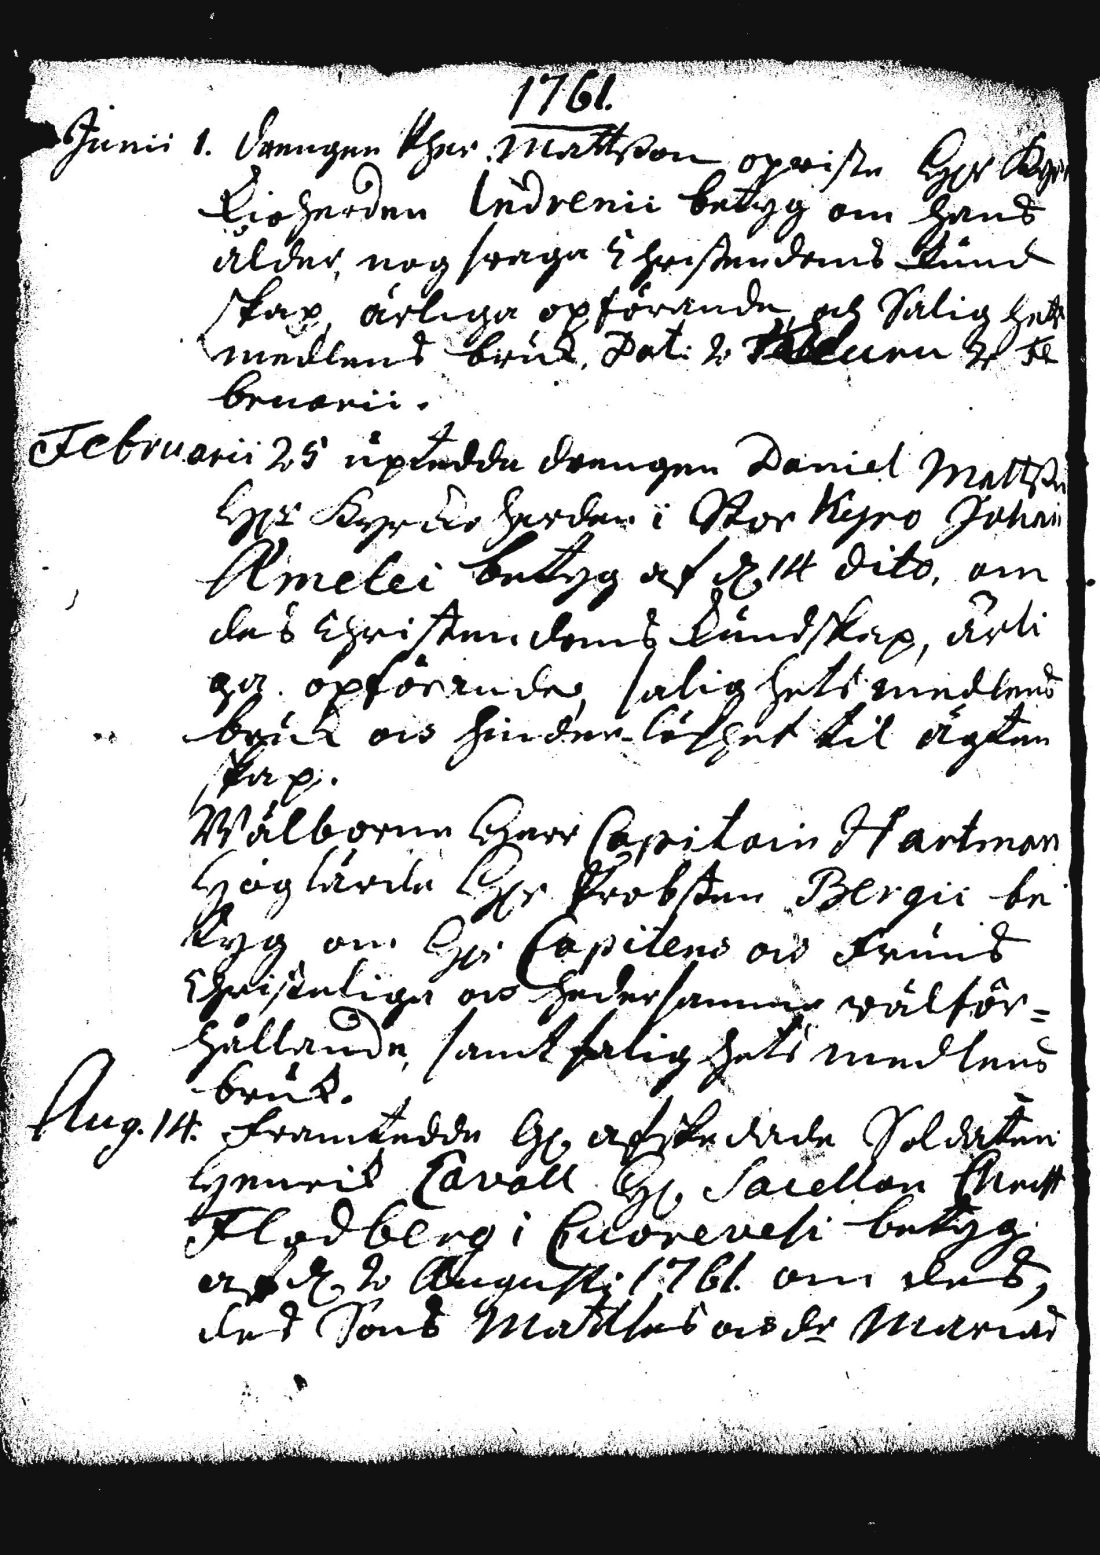 1761.
Junii 1. drengen Mattsson opviste Hr Kyr
kioherden Indrenii betyg om hans
ålder, nog svaga Christendoms kund
skap, ärliga opförande, och Salighets
medlens bruk. Dat: 2 Fe
bruarii.
Februarii 25 uptedde drengen Daniel Mattsson
Hr Kyrkioherden i Stor Kyro Johan
Amelei betyg af d. 14 dito, om
des Christendoms kundskap, ärli
ga opförande, salighets medlens
bruk och hinder-löshet til ägten
skap.
Wälborne Herr Capitain Hartman
Höglärde Hr Probsten Bergii be
tyg om Hr Capitens och Fruns
Christeliga och hedersamma wälför=
hållande, samt salighets medlens
bruk.
Aug. 14. framtedde afskedade Soldaten
Henrik Cavall Sacellan
Flodberg i Cuorevesi betyg
af d. 2 Augusti 1761. om des,
des Sons Matthes och Marias